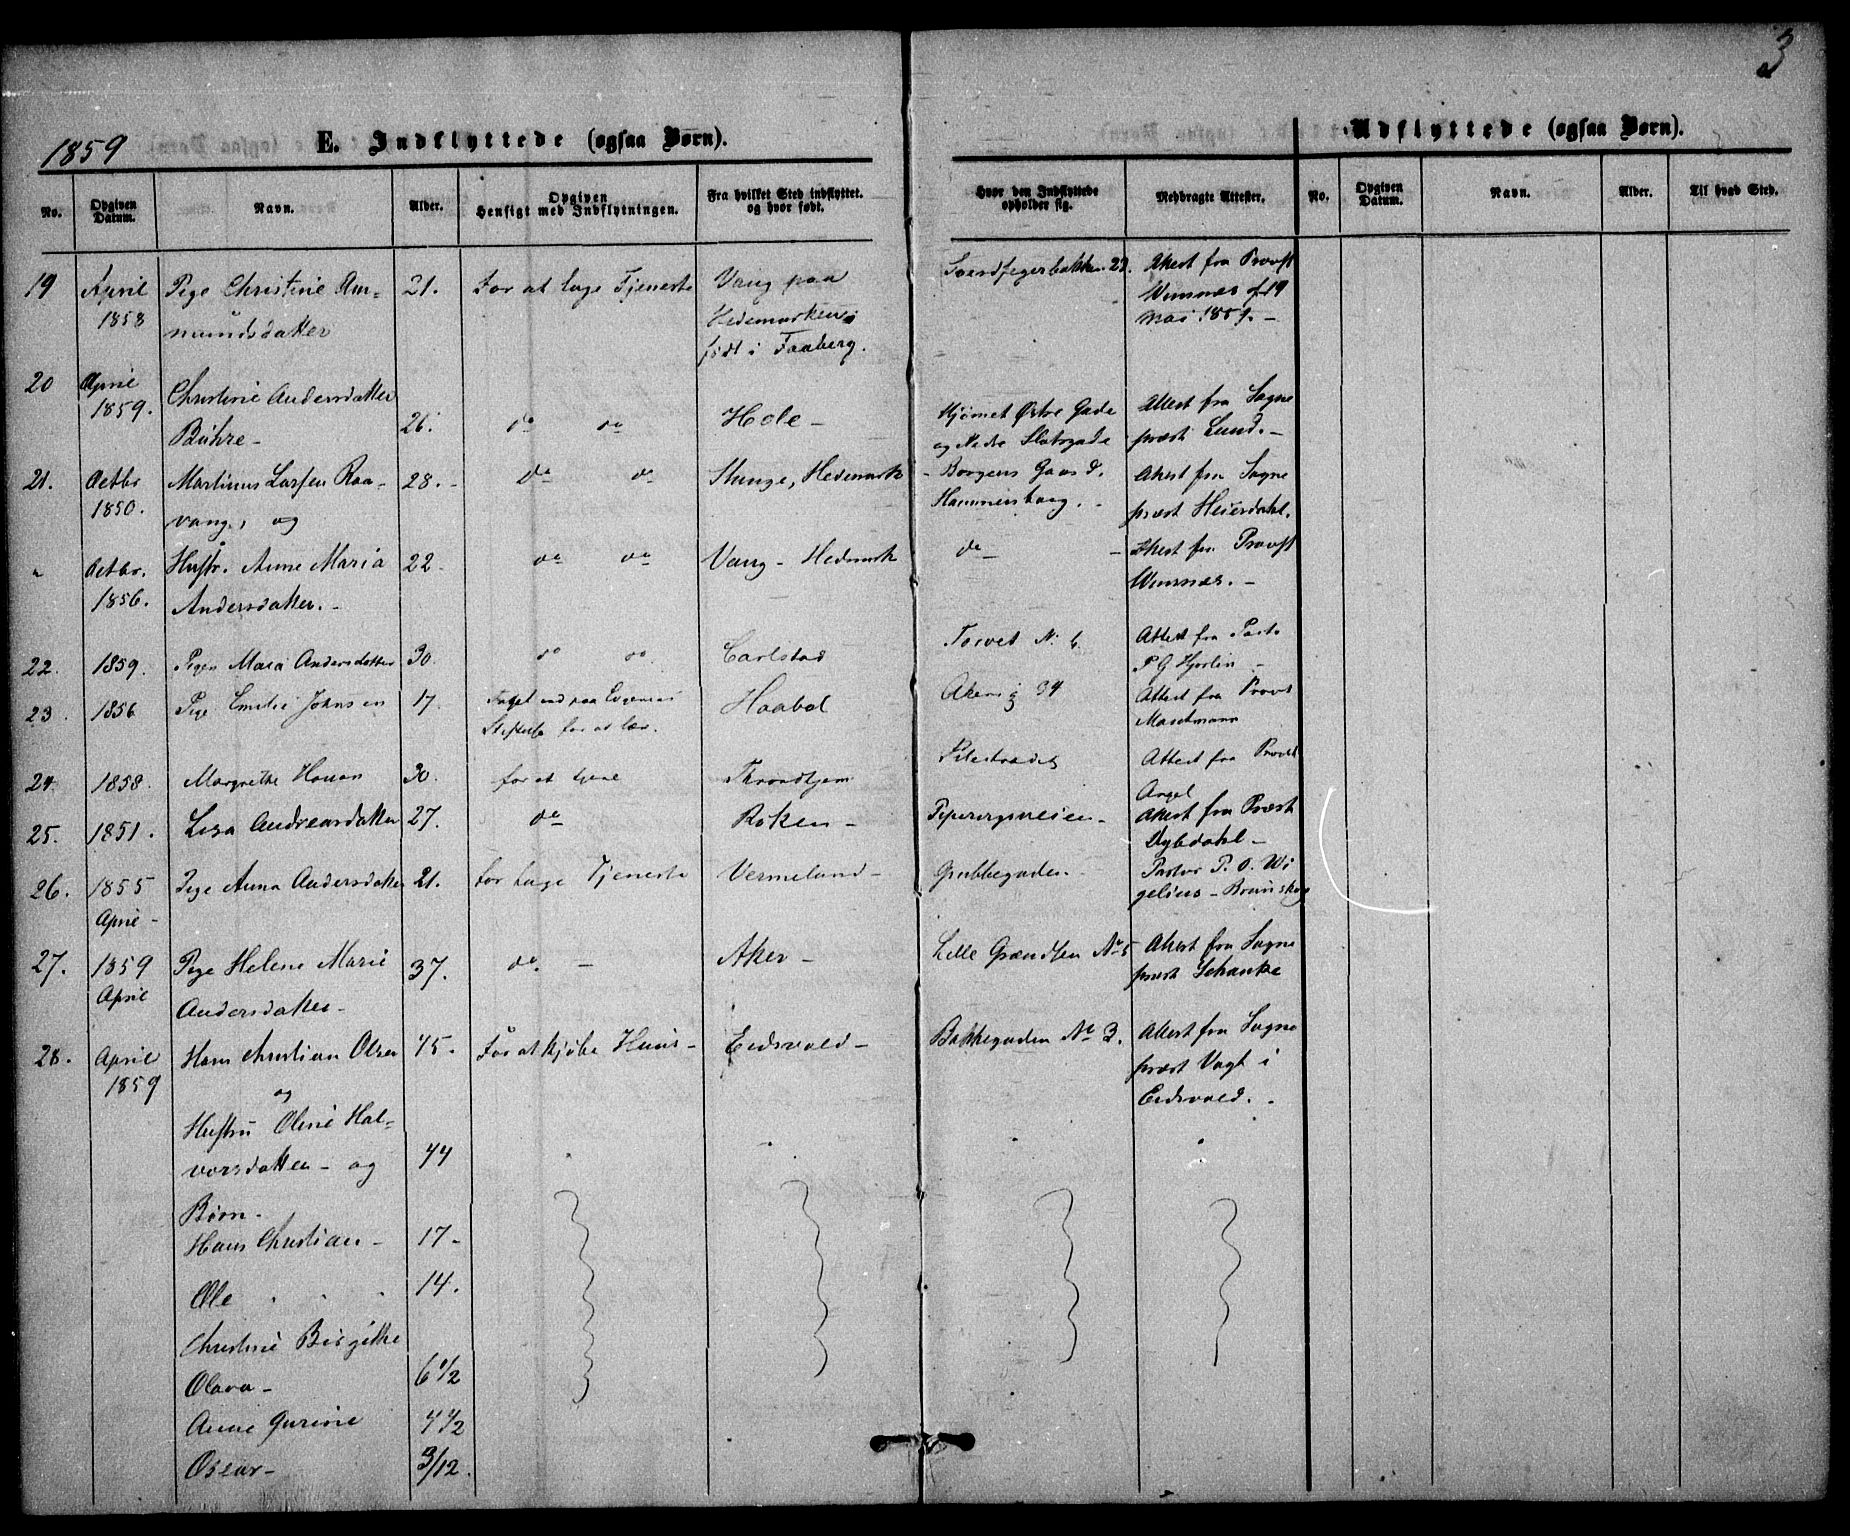 3
1859
E. Indflyttede (ogsaa Børn).
Udflyttede (ogsaa Børn).
No.
Opgiven Datum.
Navn.
Alder.
Opgiven Hensigt med Indflytningen.
Fra hvilket Sted indflyttet. og hvor født.
Hvor den Indflyttede opholder sig.
Medbragte Attester.
No.
Opgiven Datum.
Navn.
Alder.
Til hvad Sted.
19 April Pige Christine Am- 21. For at tage Tjeneste Vang paa 23. Attest fra Provst
1858 mundsdatter Hedemarken 19
født i Faaberg. Mai 1859. -
20 April Christine Andersdatter Attest fra Sogne
1859. Bùhre - 26. do do Hole - Hjørnet Østre Gade præst Lund. -
og Nedre Slotsgade
21. Octbr Martinus Larsen Raa- 28. - do do Stange, Hedemark - Borgens Gaard. Attest fra Sogne
1850. vang, og Hammersborg. - præst Heierdahl.
" Octbr. Hustr. Anne Maria 22 - do do Vang - Hedmark do - Attest fra Provst
1856. Andersdatter. -
22. 1859. Pigen Maria Andersdatter 30. do do. Carlstad Torvet N. 6. Attest fra Pastor
P G Hjorlin -
23. 1856 Pige Emilie Johnsen 17. Haabøl Akers 34 Attest fra Provst
for at lær. Maschmann
24. 1858. Margrethe 30. for at tjene Throndhjem Attest fra Provst
Angel
25. 1851. Lisa Andreasdatter 27. do Røken - Pipervigsveien - Attest fra Præst
Dybdahl -
26. 1855 Pige Anna Andersdatter 21. for tage Tjeneste Vermeland - Grubbegaden - Pastor P. O. Wi
April - gelius - Brunskog
27. 1859 Pige Helene Marie 37. do. - Aker - Lille Grændsen No 5 Attest fra Sogne
April Andersdatter - præst Schanke
28. April Hans Christian Olsen 45. For at kjøbe Huus - Eidsvold - Bakkegaden No 3. Attest fra Sogne
1859 og præst Vogt i
Hustrù Oline Hal- Eidsvold. -
vorsdatter - og 44
Børn -
Hans Christian - 17 -
Ole 14.
Christine Birgitthe
Olava - 6 1/2
Anne Gurine 4 1/2
Oscar - 3/12.